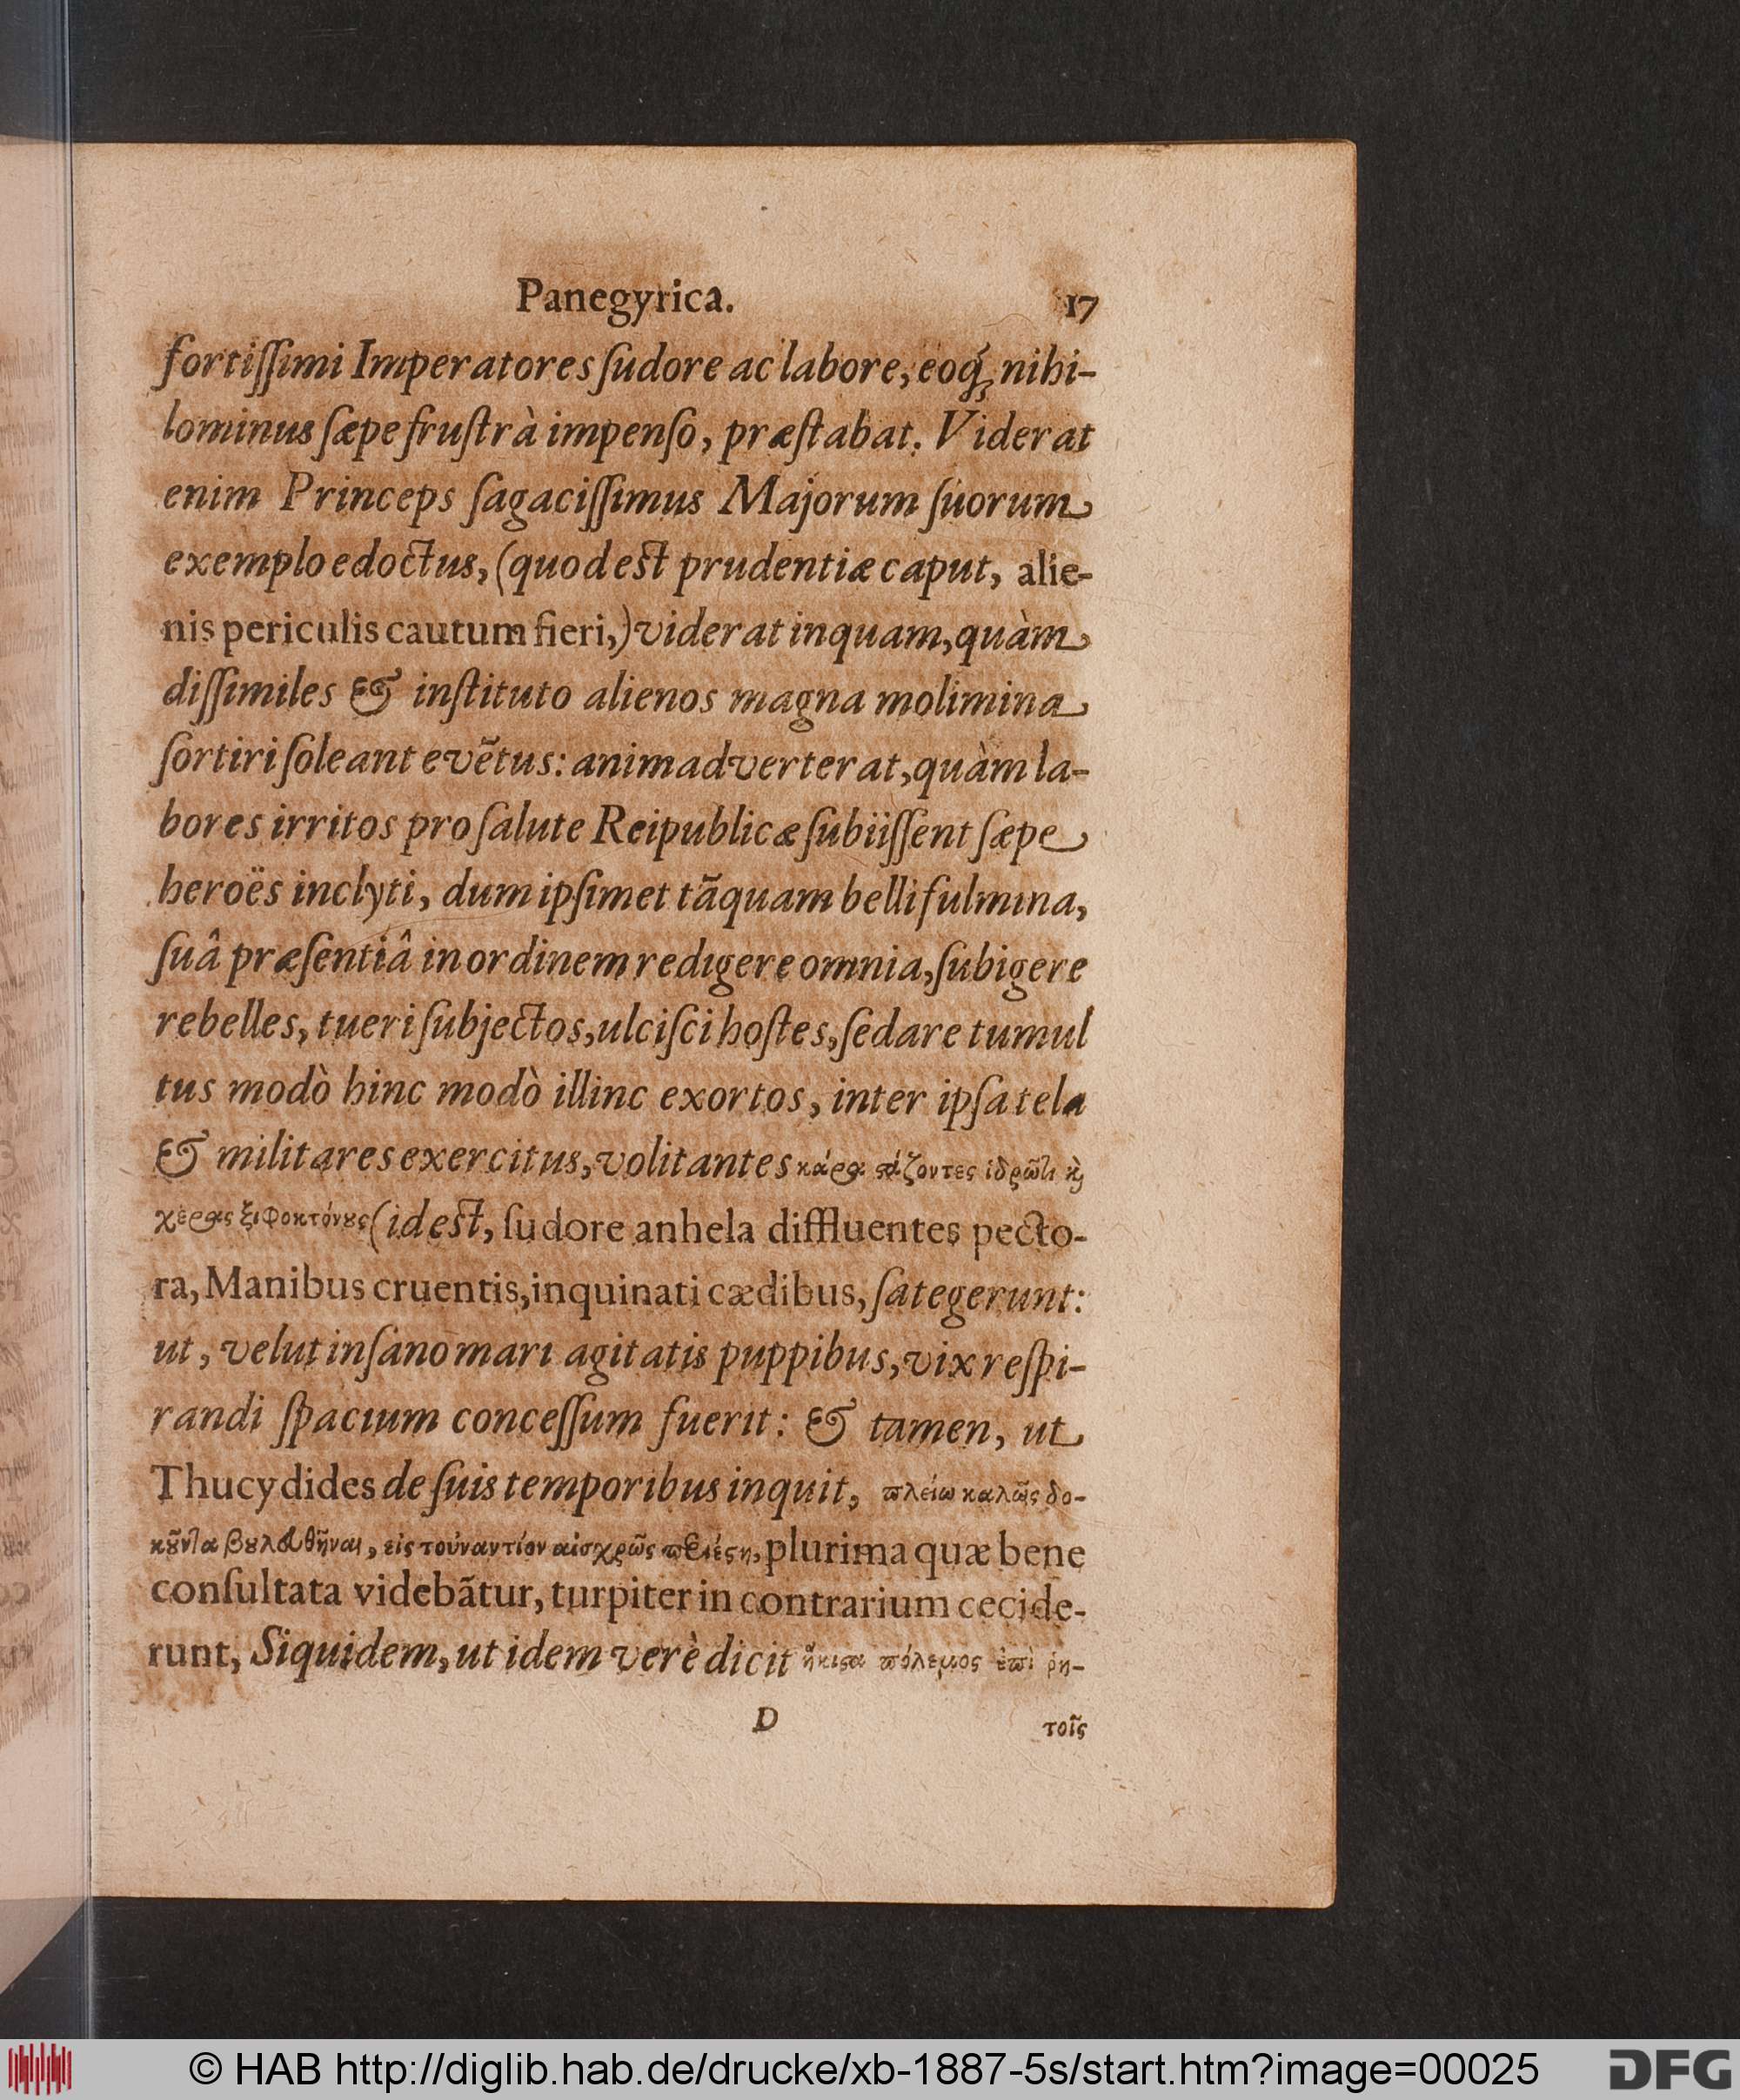 Panegyrica. 17
fortiſſimi Imperatores ſudore ac labore, eoq́; nihi-
lominus ſæpe fruſtrà impenſo, præſtabat. Viderat
enim Princeps ſagaciſſimus Majorum ſuorum
exemplo edoctus, (quod est prudentiæ caput, alie-
nis periculis cautum fieri,) viderat inquam, quàm
diſſimiles & inſtituto alienos magna molimina
ſortiri ſoleant evẽtus: animadverterat, quàm la-
bores irritos pro ſalute Reipublicæ ſubiiſſent ſæpe
heroës inclyti, dum ipſimet tãquam belli fulmina,
ſuâ præſentiâ in ordinem redigere omnia, ſubigere
rebelles, tueri ſubjectos, ulciſci hoſtes, ſedare tumul
tus modò hinc modò illinc exortos, inter ipſa tela
& militares exercitus, volitantes κάρα ϛάζοντες ἱδρῶτι ϗ̀
χέρας ξιφοκτόνȣς (id est, ſudore anhela diffluentes pecto-
ra, Manibus cruentis, inquinati cædibus, ſategerunt:
ut, velut inſano mari agitatis puppibus, vix reſpi-
randi ſpacium conceſſum fuerit: & tamen, ut
Thucydides de ſuis temporibus inquit, πλείω καλῶς δο-
κȣ͂ντα βȣλευθῆναι, εἰς τοὐναντίον αἰσχρῶς περιέϛη, plurima quæ bene
conſultata videbãtur, turpiter in contrarium cecide-
runt, Siquidem, ut idem verè dicit ἥκιϛα πόλεμος ἐπὶ ῥη-
D τοῖς
© HAB http://diglib.hab.de/drucke/xb-1887-5s/start.htm?image=00025
DFG